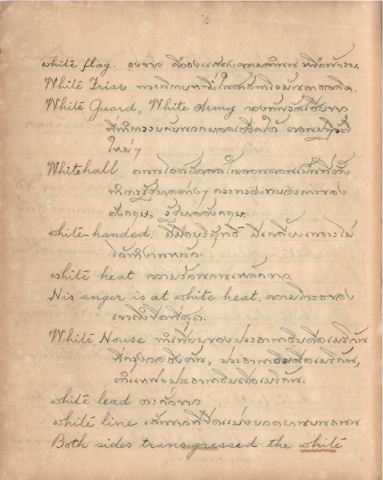 6
white flag. ธงขาว คือธงแสดงความ หรือ
White Friar
White Guard, White Army กองทัพรัสเซียขาว
ที่ทำการรบกับพวกบอลเชวิคได้
ใหม่ๆ
Whitehall ถนน ในลอนดอนเป็นที่ตั้ง
ทำการรัฐบาลต่างๆ กระทรวงทบวงการของ
อังกฤษ, รัฐบาลอังกฤษ.
white-handed. มีมือบริสุทธิ์ มี เพราะไม่
ได้ทำงานหนัก
white heat ความร้อนจนเหล็กขาว
His anger is at white heat. ความโกรธของ
เขาถึงขีดที่สุด.
White House ทำเนียบของประธานาธิบดีอเมริกัน
ที่กรุงวอชิงตัน, ประธานาธิบดีอเมริกัน,
ตำแหน่งประธานาธิบดีอเมริกัน.
white lead ตะกั่วขาว
white line เส้นขาวที่ขีดแบ่ง ถนน
Both sides transgressed the white